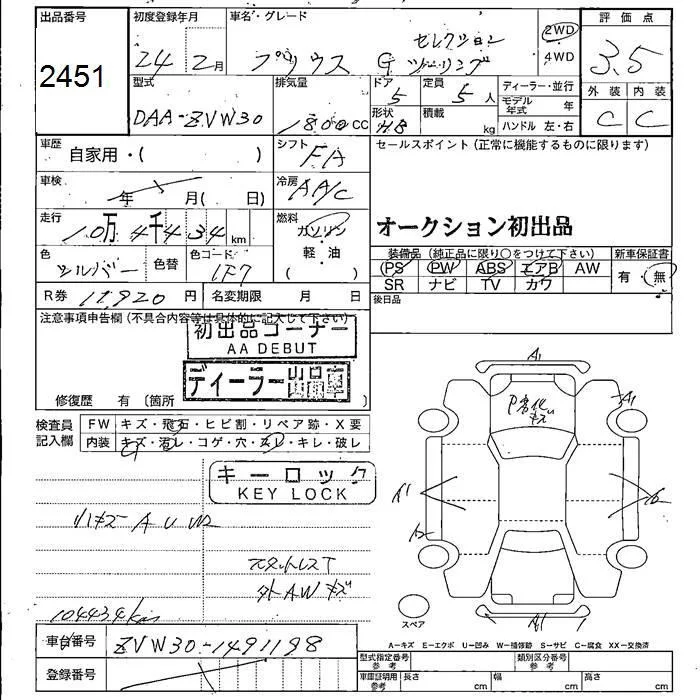 出品番号 初度登録年月 車名・グレード 評価点
2451
24年2月 プリウス G セレクション ツーリング 2WD 4WD 3.5
外装 内装
C C
型式 排気量 ドア 定員 ディーラー・並行
DAA-ZVW30 1800cc 5 5人 モデル年式 年
形状 積載 ハンドル 左・右
HB kg
車歴 自家用・( ) シフト FA セールスポイント(正常に機能するものに限ります)
車検 年 月( 日) 冷房 AA/C
走行 10万4千434km 燃料 ガソリン・軽・油 ( ) オークション初出品
装備品(純正品に限り○をつけて下さい) 新車保証書
色 シルバー 色替 色コード 1F7 PS PW ABS エアB AW 有・無
SR ナビ TV カワ
R券 11,920円 名変期限 月 日 後日品
注意事項申告欄(不具合内容等は具体的に記入して下さい)
初出品コーナー
AA DEBUT
ディーラー出品車
修復歴 有 〔箇所 〕
検査員記入欄 FW キズ・飛石・ヒビ割・リペア跡・X要
内装 キズ・汚レ・コゲ・穴・スレ・キレ・破レ
キーロック
KEY LOCK
A1
A1
A1
A1
リハキズ A U W2
外AWキズ
104434km
スペア
車台番号 ZVW30-1491198
登録番号
A-キズ E-エクボ U-凹み W-補修跡 S-サビ C-腐食 XX-交換済
型式指定番号 参考 類別区分番号 参考
車庫証明用 参考 長さ cm 幅 cm 高さ cm